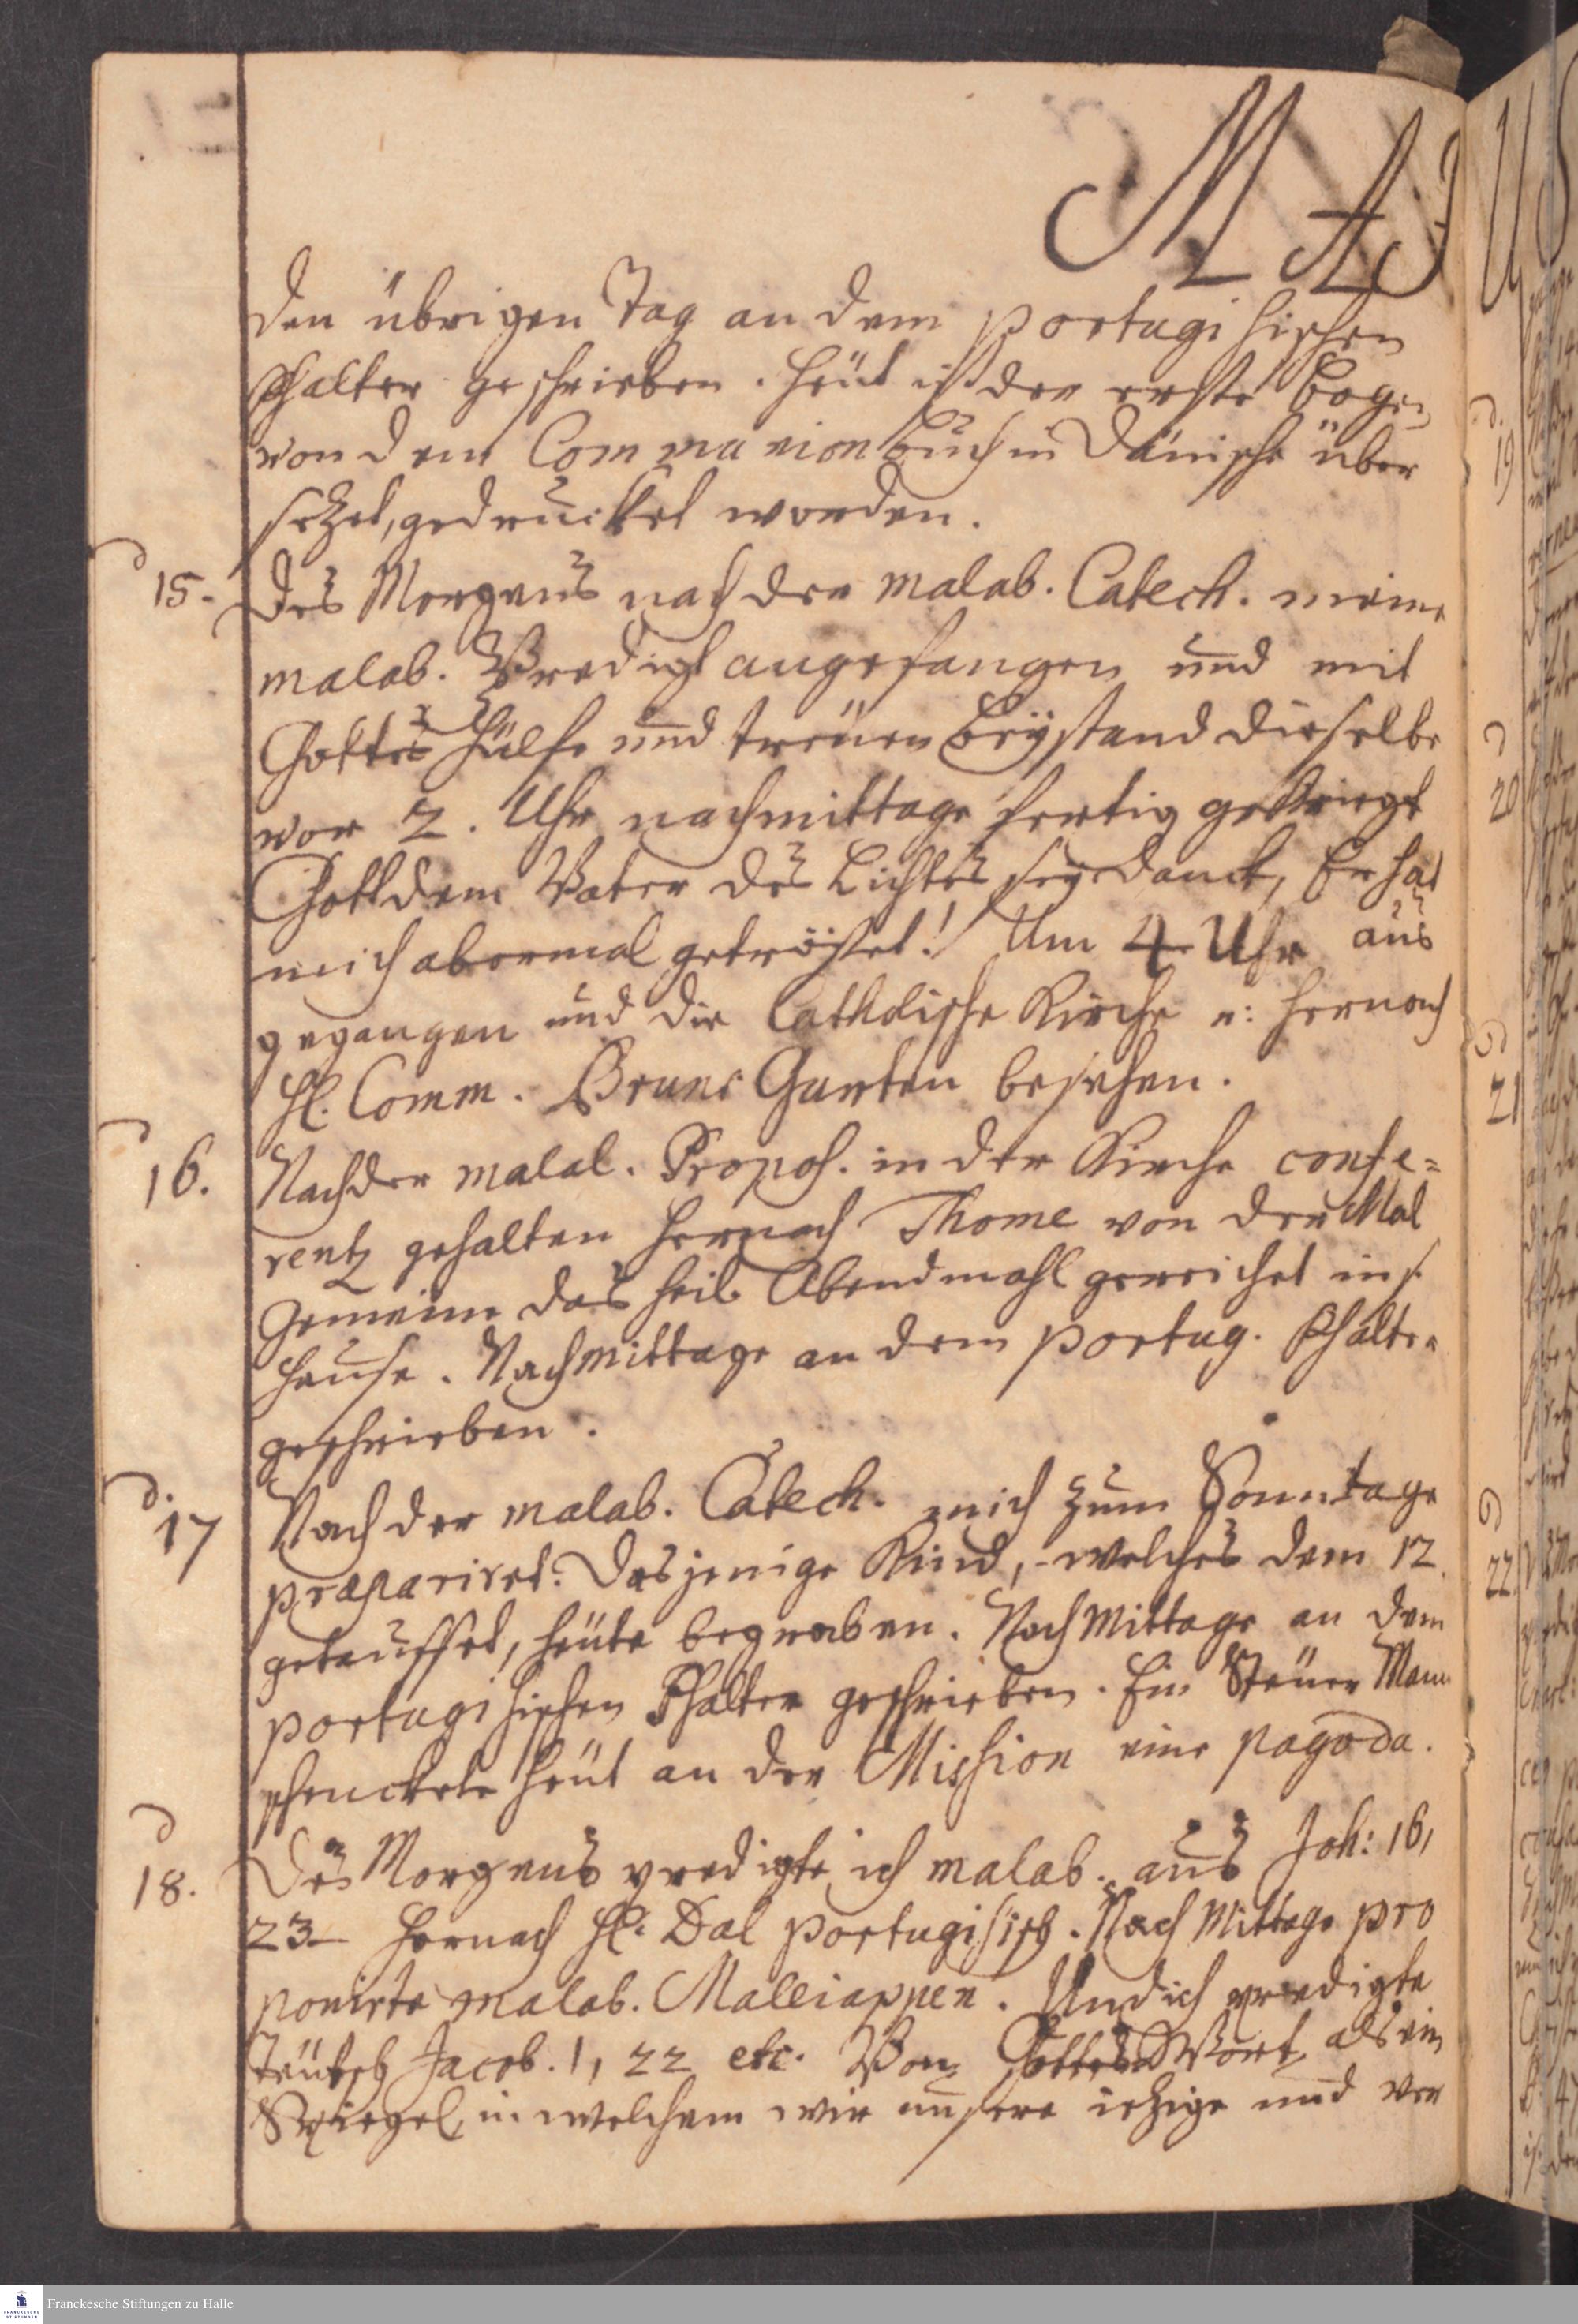 MAJ
den übrigen Tag an dem Portugisischen
Psalter geschrieben. Heüt ist der erste Bogen
von dem Communionbuch in Dänische über
setzet, gedrucket worden.
d 15. Des Morgens nach der malab. Catech. meine
malab. Predigt angefangen und mit
Gottes Hülfe und treüen Beÿstand dieselbe
vor 2. Uhr nachmittage fertig gekriegt
Gott dem Vater des Lichtes seÿ danck, Er hat
mich abermal getröstet! Um 4 Uhr aus
gegangen und die Catholische Kirche u: hernach
H. Comm. Bruns Garten besehen.
d 16. Nach der malab. Propos. in der Kirche confe=
rentz gehalten hernach Thome von der Mal
Gemeine das heil. Abendmahl gereichet in s.
Hause. Nachmittage an dem portug. Psalter
geschrieben.
d. 17 Nach der malab. Catech. mich zum Sonntage
præpariret. Dasjenige Kind, welches dem 12.
getauffet, heüte begraben. Nachmittage an dem
portugisischen Psalter geschrieben. Ein Steüer Mann
schenckete heüt an der Mission eine pagoda.
d 18. Des Morgens predigte ich malab. aus Joh: 16,
23_ hernach H. Dal portugisisch. Nach Mittage pro
ponirte malab. Malleiappen. Und ich predigte
Teütsch Jacob. 1, 22 etc. Von Gottes Wort als ein
Spiegel, in welchem wir unsere ietzige und ver
d. 19
20
21
22.
Franckesche Stiftungen zu Halle